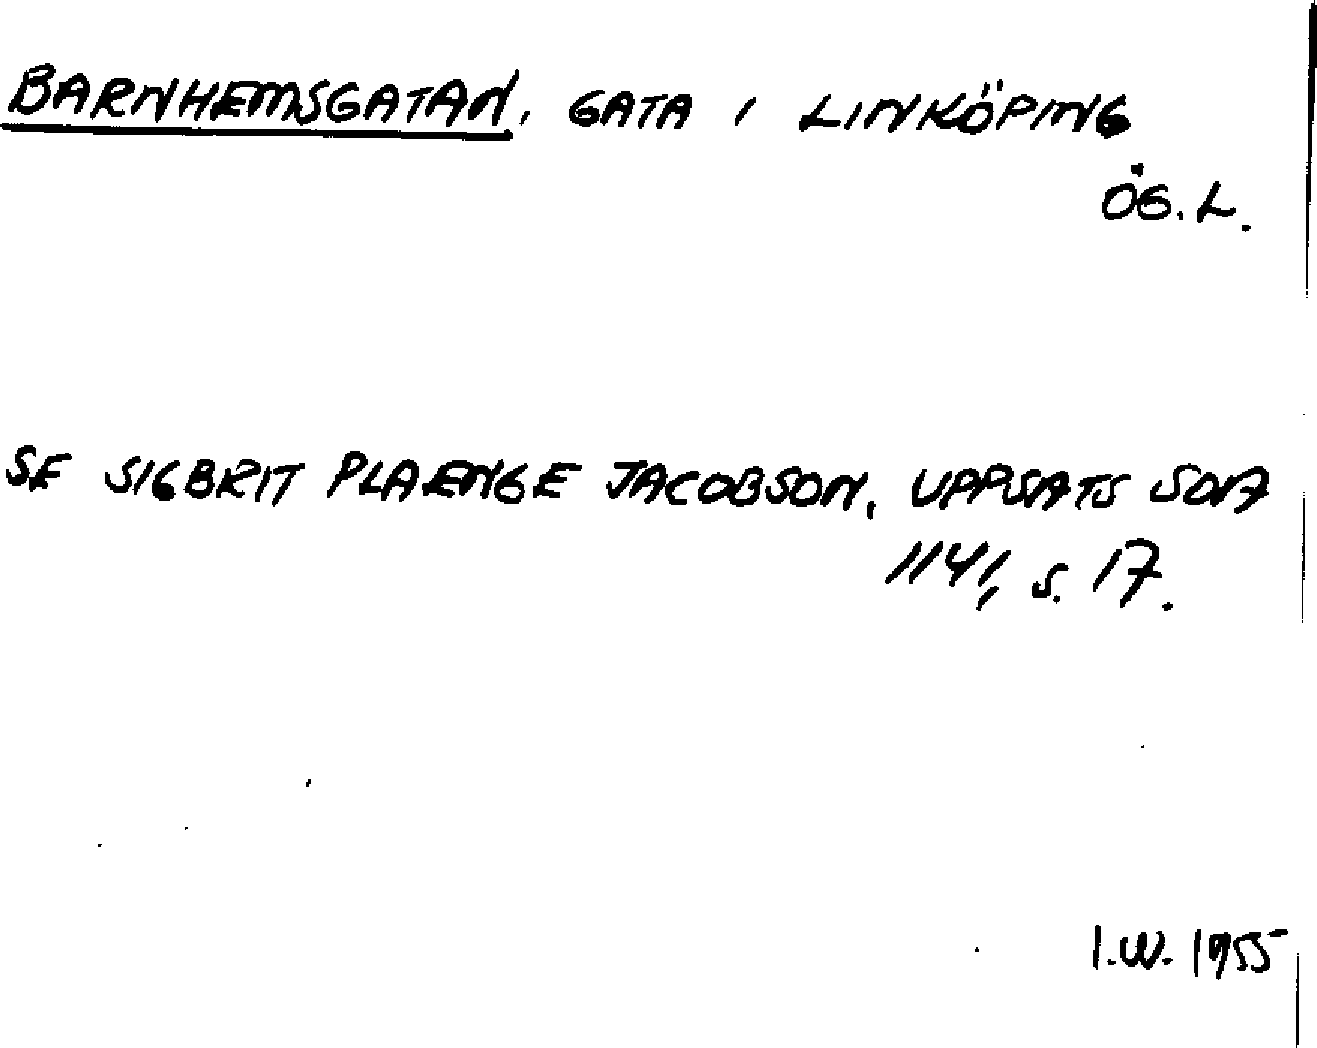 BARNHEMSGATAN, GATA I LINKÖPING
ÖG. L.
SE SIGBRIT PLAENGE JACOBSON, UPPSATS SOA
1141, S. 17.
I.W. 1955